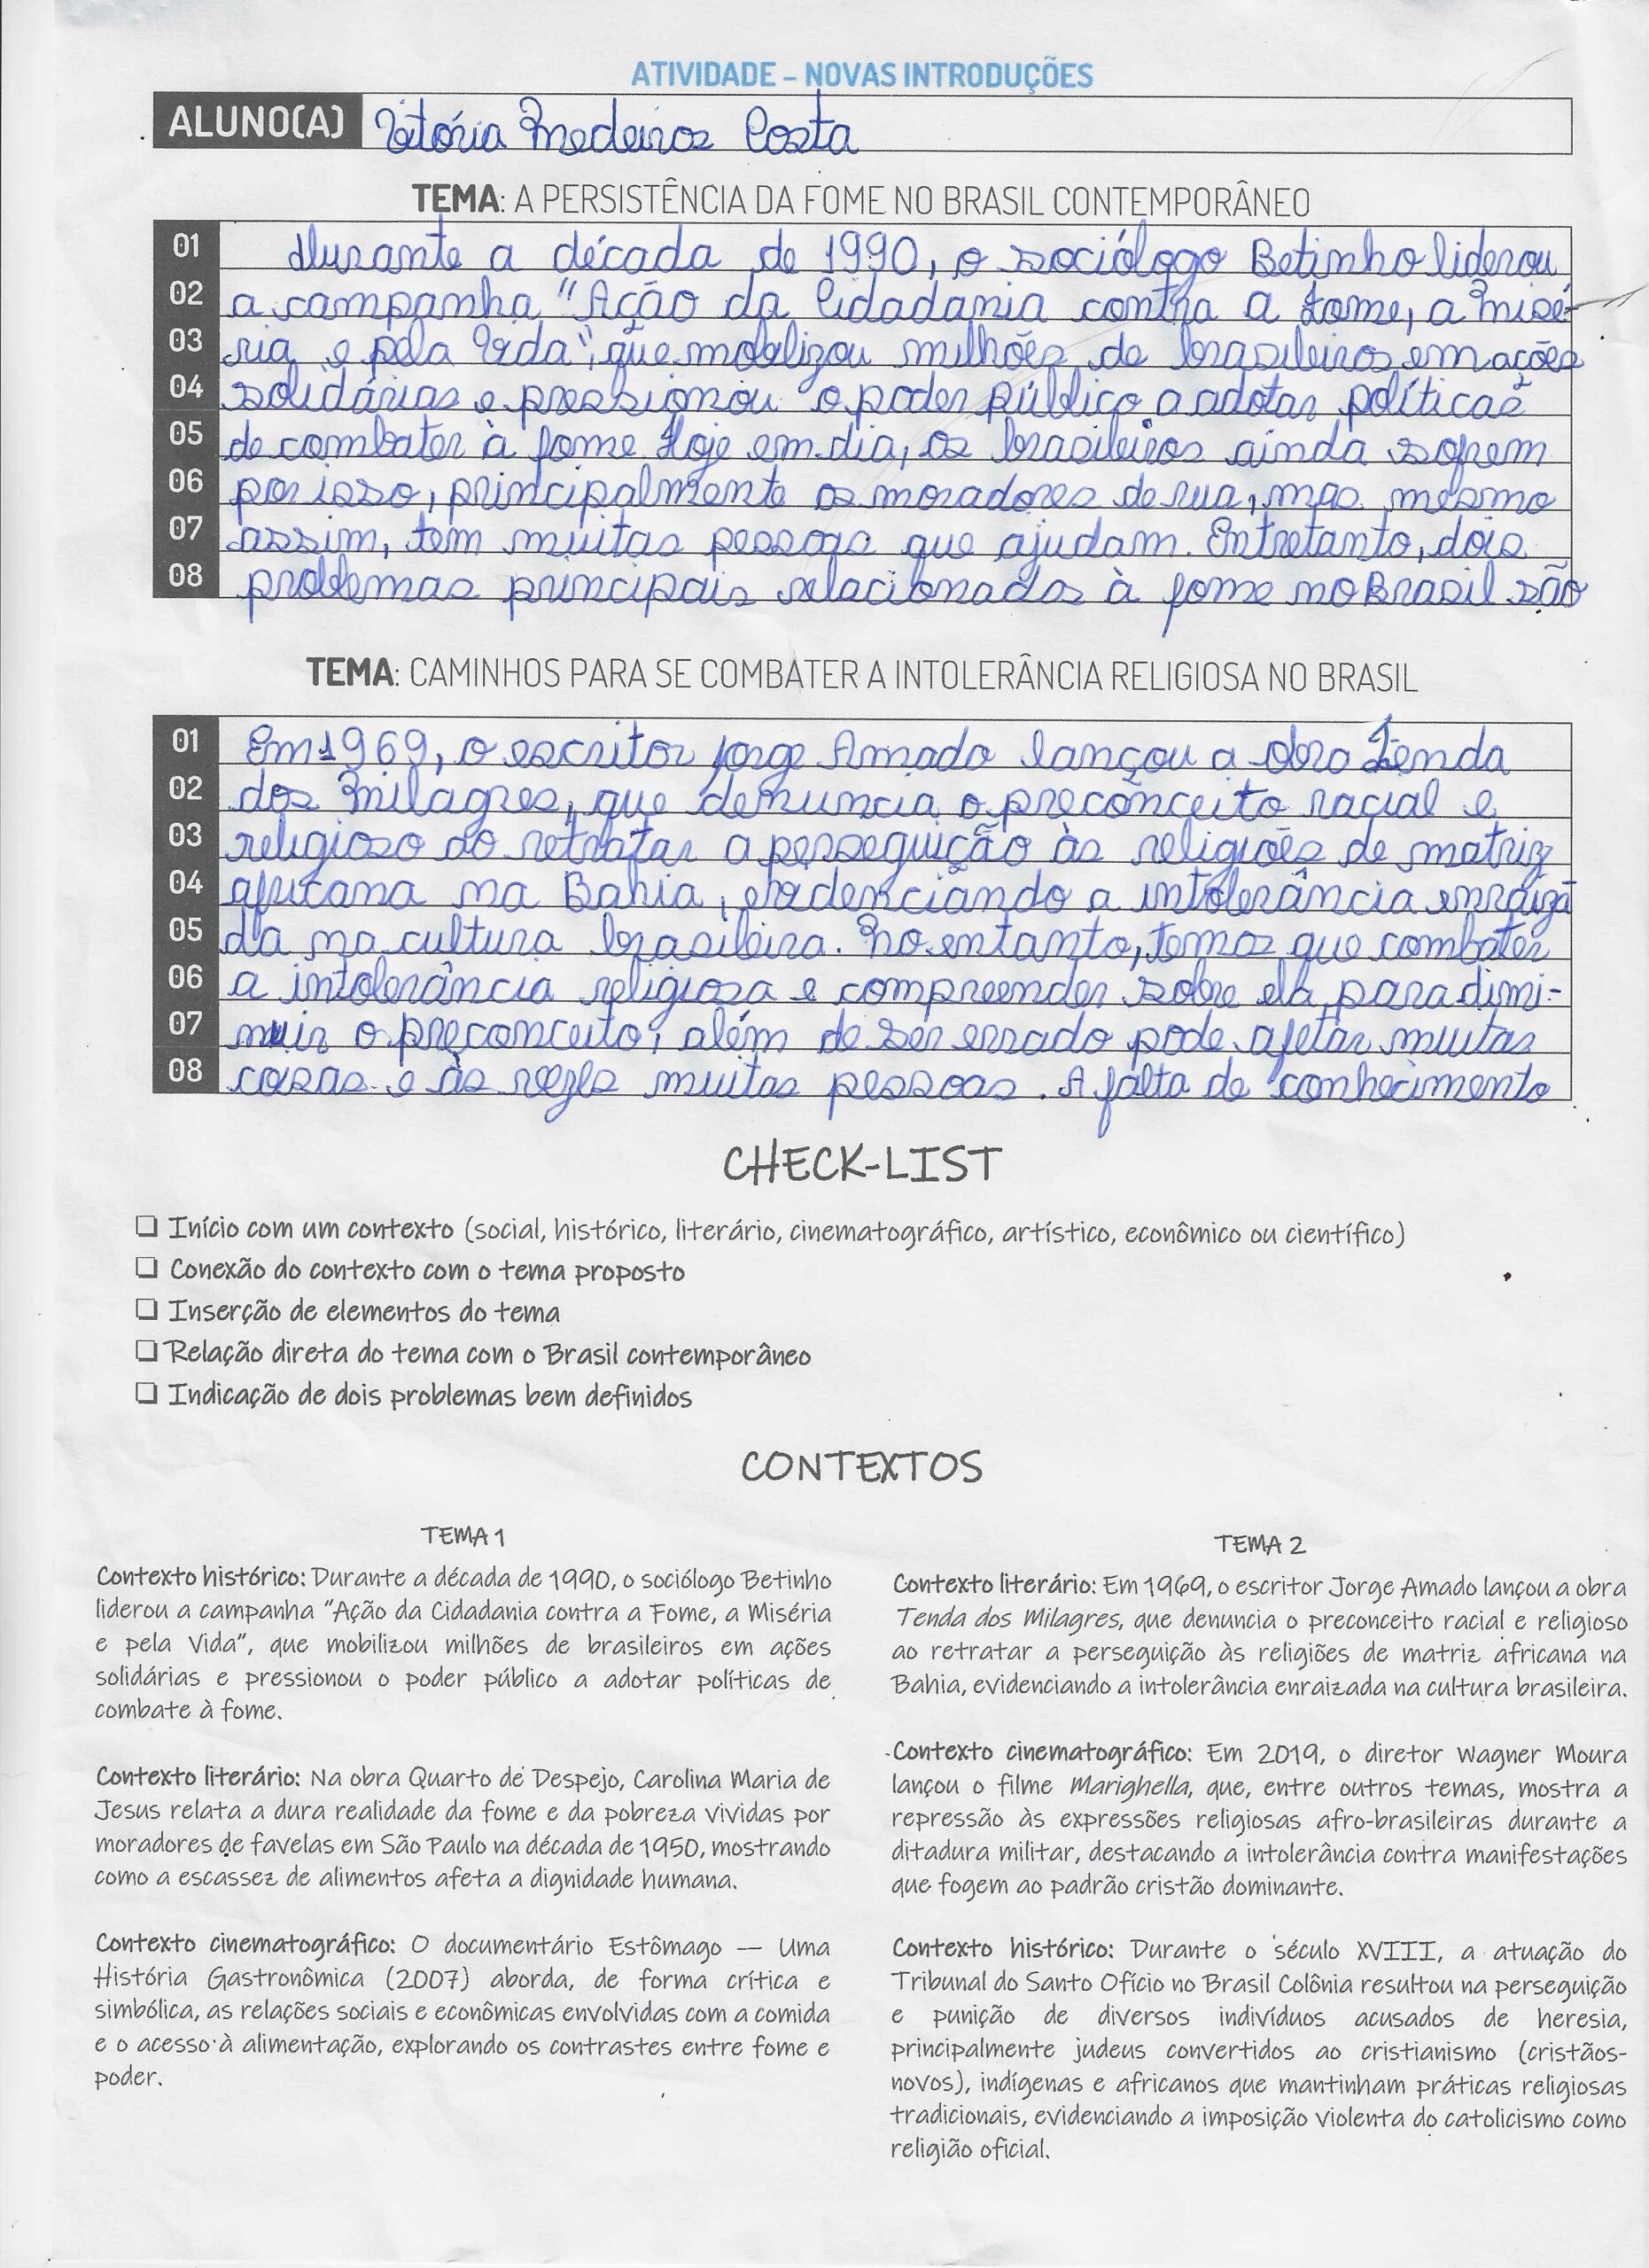 ATIVIDADE – NOVAS INTRODUÇÕES
ALUNO(A) Vitória Medeiros Costa
TEMA: A PERSISTÊNCIA DA FOME NO BRASIL CONTEMPORÂNEO
01 Durante a década de 1990, o sociólogo Betinho liderou
02 a campanha "Ação da Cidadania contra a Fome, a Misé-
03 ria e pela Vida", que mobilizou milhões de brasileiros em ações
04 solidárias e pressionou o poder público a adotar políticas
05 de combater à fome. Hoje em dia, os brasileiros ainda sofrem
06 por isso, principalmente os moradores de rua, mas mesmo
07 assim, tem muitas pessoas que ajudam. Entretanto, dois
08 problemas principais relacionados à fome no Brasil são
TEMA: CAMINHOS PARA SE COMBATER A INTOLERÂNCIA RELIGIOSA NO BRASIL
01 Em 1969, o escritor Jorge Amado lançou a obra Tenda
02 dos Milagres, que denuncia o preconceito racial e
03 religioso ao retratar a perseguição às religiões de matriz
04 africana na Bahia, evidenciando a intolerância enraiza
05 da na cultura brasileira. No entanto, temos que combater
06 a intolerância religiosa e compreender sobre ela para dimi-
07 nuir o preconceito, além de ser errado pode afetar muitas
08 coisas e às vezes muitas pessoas. A falta de conhecimento
CHECK-LIST
❏ Início com um contexto (social, histórico, literário, cinematográfico, artístico, econômico ou científico)
❏ Conexão do contexto com o tema proposto
❏ Inserção de elementos do tema
❏ Relação direta do tema com o Brasil contemporâneo
❏ Indicação de dois problemas bem definidos
CONTEXTOS
TEMA 1
Contexto histórico: Durante a década de 1990, o sociólogo Betinho
liderou a campanha "Ação da Cidadania contra a Fome, a Miséria
e pela Vida", que mobilizou milhões de brasileiros em ações
solidárias e pressionou o poder público a adotar políticas de
combate à fome.
Contexto literário: Na obra Quarto de Despejo, Carolina Maria de
Jesus relata a dura realidade da fome e da pobreza vividas por
moradores de favelas em São Paulo na década de 1950, mostrando
como a escassez de alimentos afeta a dignidade humana.
Contexto cinematográfico: O documentário Estômago — Uma
História Gastronômica (2007) aborda, de forma crítica e
simbólica, as relações sociais e econômicas envolvidas com a comida
e o acesso à alimentação, explorando os contrastes entre fome e
poder.
TEMA 2
Contexto literário: Em 1969, o escritor Jorge Amado lançou a obra
Tenda dos Milagres, que denuncia o preconceito racial e religioso
ao retratar a perseguição às religiões de matriz africana na
Bahia, evidenciando a intolerância enraizada na cultura brasileira.
Contexto cinematográfico: Em 2019, o diretor Wagner Moura
lançou o filme Marighella, que, entre outros temas, mostra a
repressão às expressões religiosas afro-brasileiras durante a
ditadura militar, destacando a intolerância contra manifestações
que fogem ao padrão cristão dominante.
Contexto histórico: Durante o século XVIII, a atuação do
Tribunal do Santo Ofício no Brasil Colônia resultou na perseguição
e punição de diversos indivíduos acusados de heresia,
principalmente judeus convertidos ao cristianismo (cristãos-
novos), indígenas e africanos que mantinham práticas religiosas
tradicionais, evidenciando a imposição violenta do catolicismo como
religião oficial.